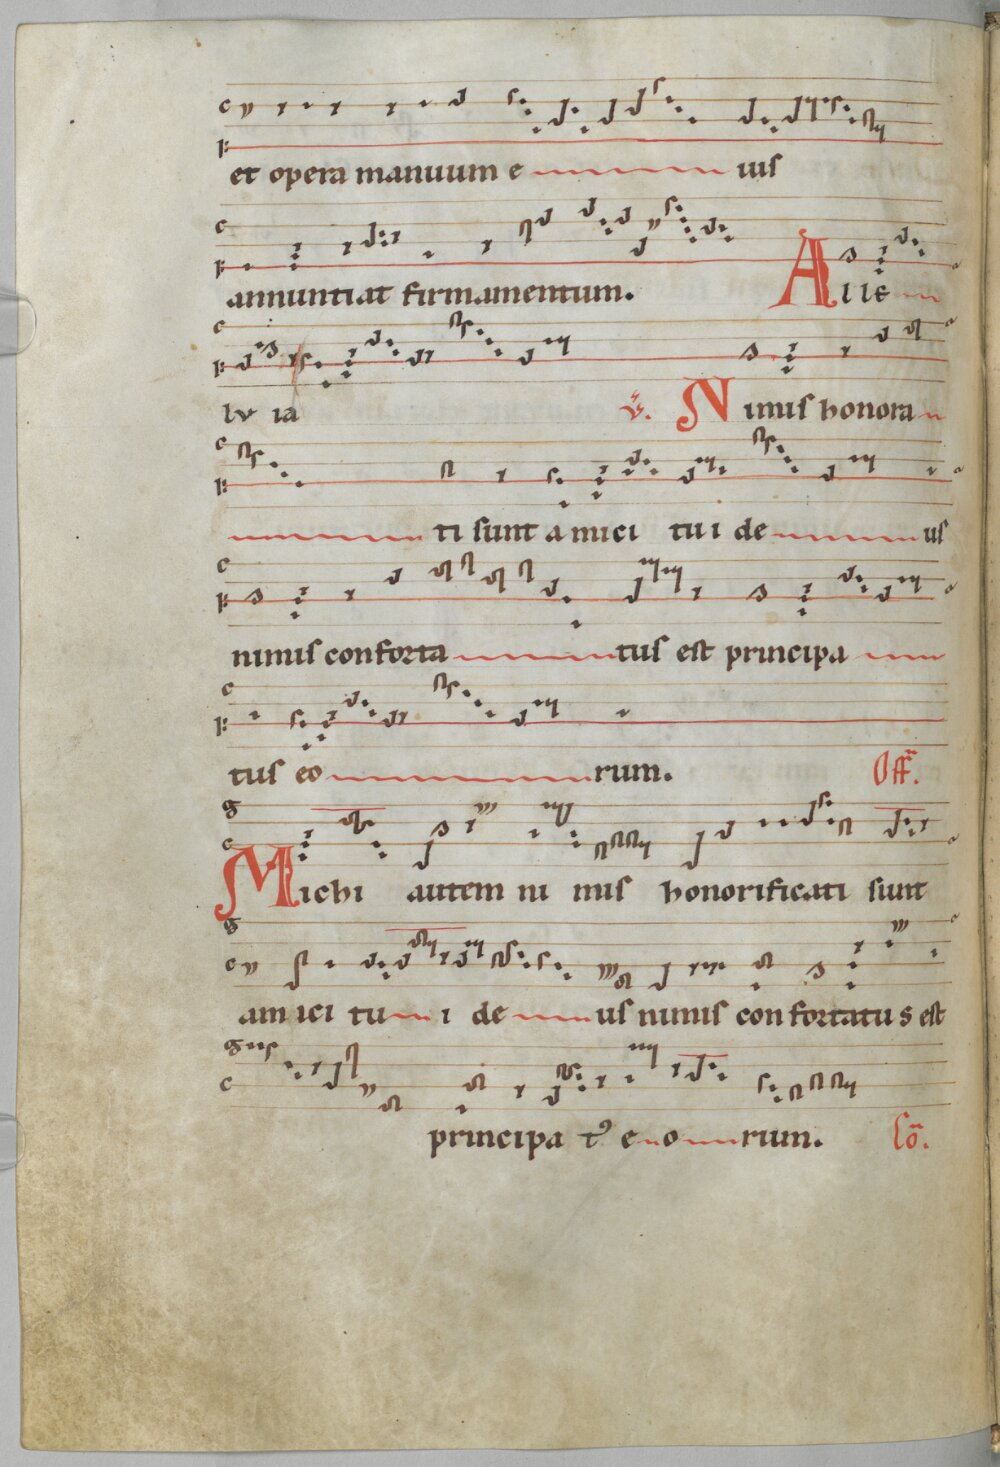 et opera manuum e ius
annuntiat firmamentum. Alle
lv ia ℣. Nimis honora
ti sunt amici tui de us
nimis conforta tus est principa
tus eo rum. Off.
Michi autem ni mis honorificati sunt
amici tu i de us nimis confortatus est
principat9 e o rum. Co.